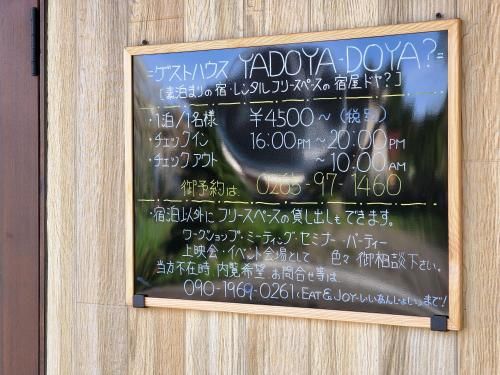 =ゲストハウス YADOYA-DOYA?=
[素泊まりの宿・レンタルフリースペースの宿屋ドヤ?]
・1泊/1名様 ¥4500~(税別)
・チェックイン 16:00PM~20:00PM
・チェックアウト ~10:00AM
御予約は 0265-97-1460
・宿泊以外にフリースペースの貸し出しもできます。
ワークショップ・ミーティング・セミナー・パーティー
上映会・イベント会場として 色々御相談下さい。
当方不在時 内覧希望、お問合せ等は
090-1969-0261(EAT&JOY-いいあんじょいっまで!